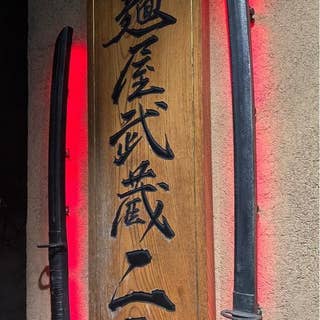 麺屋武蔵二